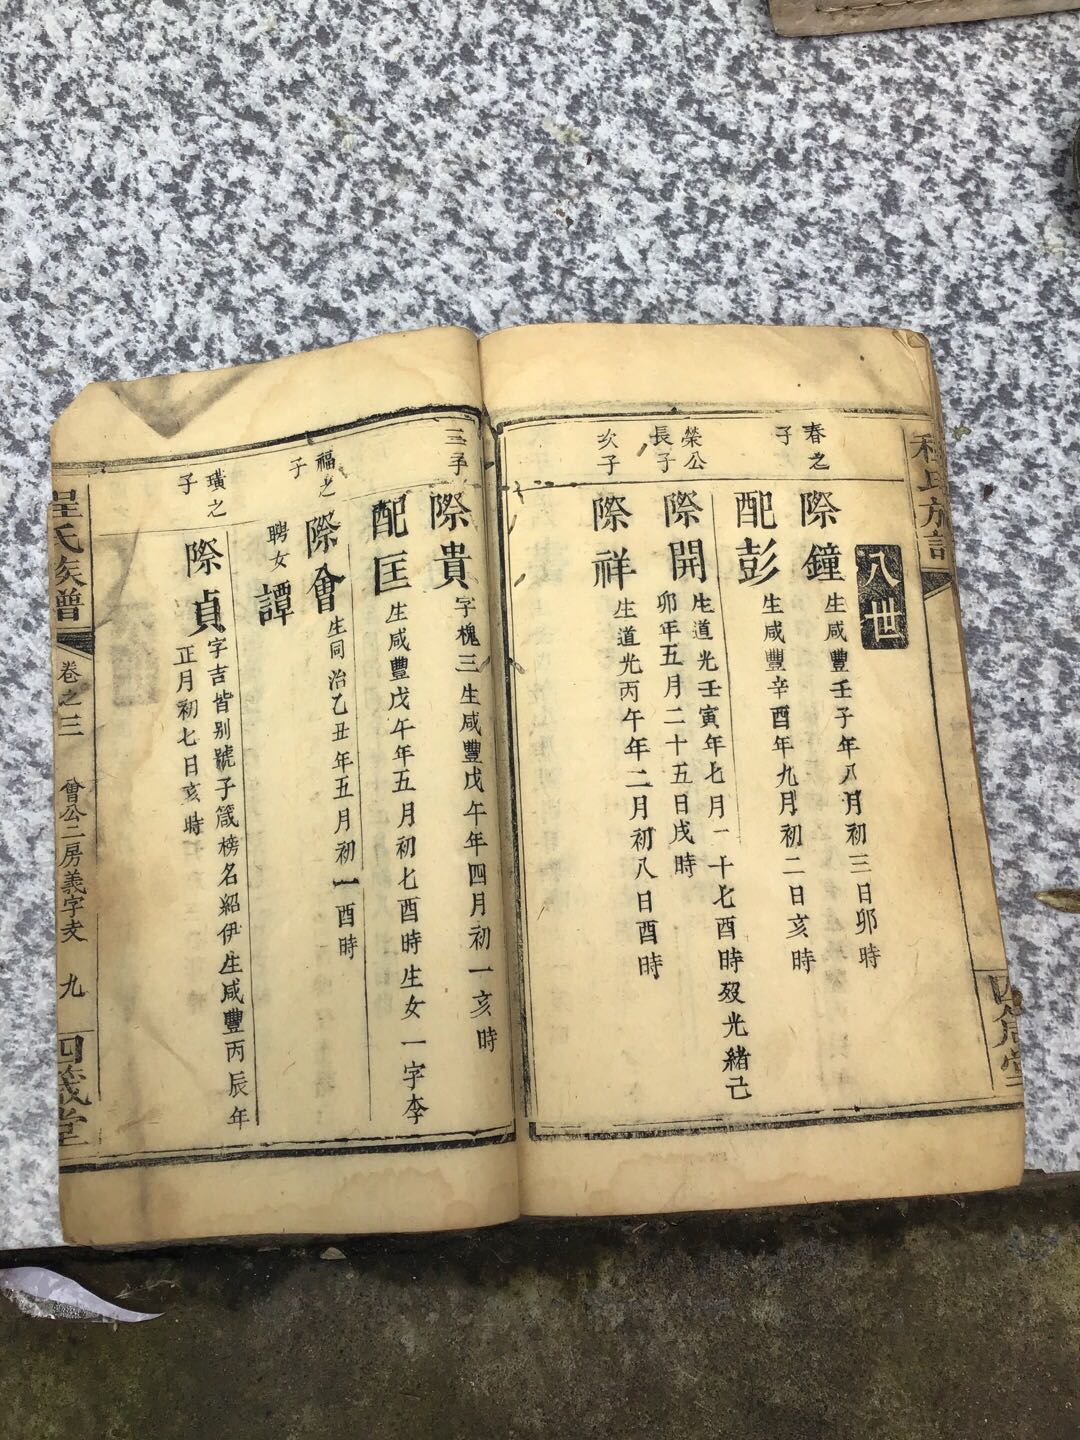 八世
春之子
際鐘
生咸豐壬子年八月初三日卯時
配彭
生咸豐辛酉年九月初二日亥時
榮公長子
際開
生道光壬寅年七月一十七酉時歿光緒己
卯年五月二十五日戌時
次子
際祥
生道光丙午年二月初八日酉時
三子
際貴
字槐三生咸豐戊午年四月初一亥時
配匡
生咸豐戊午年五月初七酉時生女一字李
福之子
際會
生同治乙丑年五月初一酉時
聘女譚
璜之子
際貞
字吉皆别號子箴榜名紹伊生咸豐丙辰年
正月初七日亥時
程氏族譜
卷之三
會公二房義字支
九
四箴堂